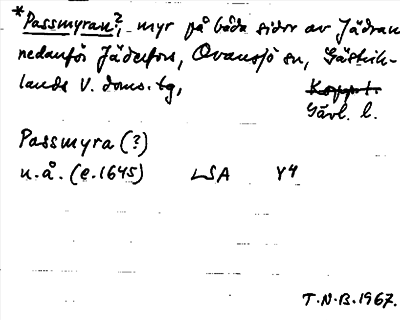 *Passmyran?, myr på båda sidor av Jädraån
nedanför Jäderfors, Ovansjö sn, Gästrik-
lands V. doms.tg, Kopp. l.
Gävl. l.
Passmyra (?)
u.å. (e.1645) LSA Y4
T.N.B.1967.